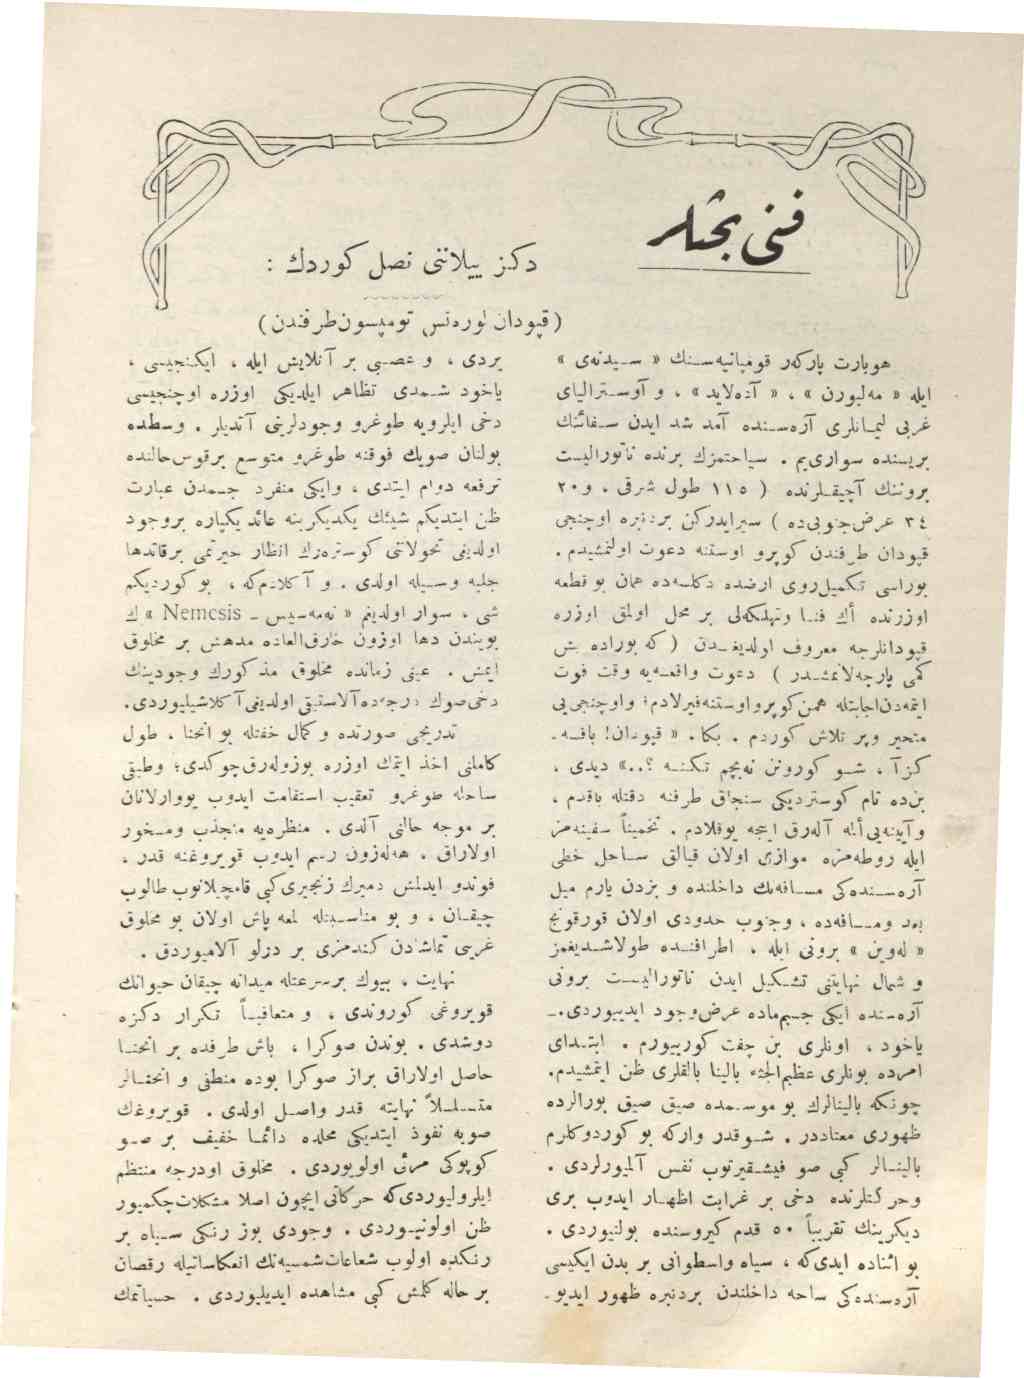 فنی بحثلر
دكز ییلاننی نصل كوردك :
( قپودان لورەنس تومپسون طرفندن )
هوبارت پاركەر قومپانیەسـنك « سـیدنەی »
ایله « مەلبورن » ، « آدەلاید » ، و آوسـترالیای
غربی لیمـانلری آرەسـندە آمد شد ایدن سـفائنك
بریسندە سواری‌یم . سیاحتمزك برندە ناتورالیست
بروننك آچیقـلرندە ( ١١٥ طول شرقی ، و ٢٠
٣٤ عرض جنوبی‌دە ) سیرایدركن بردنبرە اوچنجی
قپودان طرفندن كوپرو اوستنە دعوت اولنمشیدم .
بوراسی تكمیل‌روی ارضدە دكلسەدە همان بو قطعه
اوزرندە أك فنـا وتهلكه‌لی بر محل اولمق اوزرە
قپودانلرجه معروف اولدیغـدن ( كه بورادە بش
كمی پارچەلانمشـدر ) دعوت واقعـەیە وقت فوت
ایتمەدن‌اجابتلە همن‌كوپرواوستنەفیرلادم؛ واوچنجی‌یی
متحیر وپر تلاش كوردم . بكا، « قپودان! باقسە‌ـ
كزآ ، شـو كورونن نەبچم تكنـه ؟..» دیدی .
بن‌دە تام كوستردیكی سنجاق طرفنە دقتلە باقدم ،
و آیینەیی ألمە آلەرق ایجە یوقلادم . تخمیناً سفینەمز
ایله روطەمزە موازی اولان قبالق سـاحل خطی
آرەسـندەكی مسـافەنك داخلندە و بزدن یارم میل
بعد ومسـافەدە ، وجنوب حدودی اولان قورقونج
« لەوین » برونی ایله ، اطرافنـدە طولاشـدیغمز
و شمال نهایتنی تشـكیل ایدن ناتورالیسـت برونی
آرەسـندە ایكی جسـیم‌مادە عرض‌وجود ایدییوردی.ـ
یاخود ، اونلری بن چفت كورییورم . ابتـدای
امردە بونلری عظیم‌الجثه بالینا بالقلری ظن ایتمشیدم.
چونكه بالینالرك بو موسـمدە صیق صیق بورالردە
ظهوری معتاددر . شـوقدر واركه بو كوردوكلرم
بالینـالر كبی صو فیشـقیرتوب نفس آلمیورلردی .
وحركتلرندە دخی بر غرابت اظهـار ایدوب بری
دیكرینك تقریباً ٥٠ قدم كیروسندە بولنیوردی .
بو اثنادە ایدی‌كه ، سیاه واسطوانی بر بدن ایكیسی
آرەسـندەكی ساحه داخلندن بردنبرە ظهور ایدیوـ
یردی ، و عصـبی بر آنلایش ایله ، ایكـنجیـسی ،
یاخود شـمدی تظاهر ایلدیكی اوزرە اوچنجیسی
دخی ایلرویه طوغرو وجودلرینی آتدیلر . وسـطدە
بولنان صویك فوقنه طوغرو متوسع برقوس‌حالندە
ترفعه دوام ایتدی ، وایكی منفرد جسـمدن عبارت
ظن ایتدیكم شیئك یكدیكرینه عائد یكپارە بروجود
اولدیغی تحولاتنی كوسترەرك انظار حیرتمی برقاتدها
جلبه وسـیله اولدی . و آكلادم‌كه ، بو كوردیكم
شی ، سوار اولدیغم « نەمەسیس ـ Nemesis » ك
بویندن دها اوزون خارق‌العادە مدهش بر مخلوق
ایمش . عینی زماندە مخلوق مذكورك وجودینك
دخی‌صوك درجەدەآلاستیقی اولدیغی‌آكلاشیلیوردی.
تدریجی صورتدە و كمال خفتله بو انحنا ، طول
كاملنی اخذ ایتمك اوزرە بوزولەرق‌چوكدی؛ وطبقی
ساحله طوغرو تعقیب استقامت ایدوب یووارلانان
بر موجه حالنی آلدی . منظرەیه منجذب ومسـخور
اولاراق ، هەلەزون رسم ایدوب قویروغنه قدر ،
فوندو ایدلمش دمیرك زنجیری‌كبی قامچیلانوب طالوب
چیقـان ، و بو مناسـبتله لمعه پاش اولان بو مخلوق
غریبی تماشادن كندمزی بر درلو آلامیوردق .
نهایت ، بیوك برسرعتله میدانه چیقان حیوانك
قویروغی كوروندی ، و متعاقبـاً تكرار دكزە
دوشدی . بوندن صوكرا ، باش طرفدە بر انحنـا
حاصل اولاراق براز صوكرا بودە منطفی و انحنـالر
متسـلسلاً نهایته قدر واصـل اولدی . قویروغك
صویه نفوذ ایتدیكی محلدە دائمـا خفیف بر صـو
كوپوكی مرئی اولویوردی . مخلوق اودرجه منتظم
ایلرولیوردی‌كه حركاتی ایچون اصلا مشكلات‌چكمیور
ظن اولونیـوردی . وجودی بوز رنكی سـیاه بر
رنكدە اولوب شعاعات‌شمسیەنك انعكاساتیله رقصان
بر حاله كلمش كبی مشاهدە ایدیلیوردی . حسیاتمك